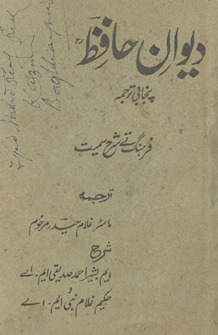 دیوانِ حافظؒ
پنجابی ترجمہ
فرہنگ تے شرح سمیت
ترجمہ
ماسٹر غلام حیدر مرحوم
شرح
ایم بشیر احمد صدیقی ایم۔اے
حکیم غلام نبی ایم۔اے